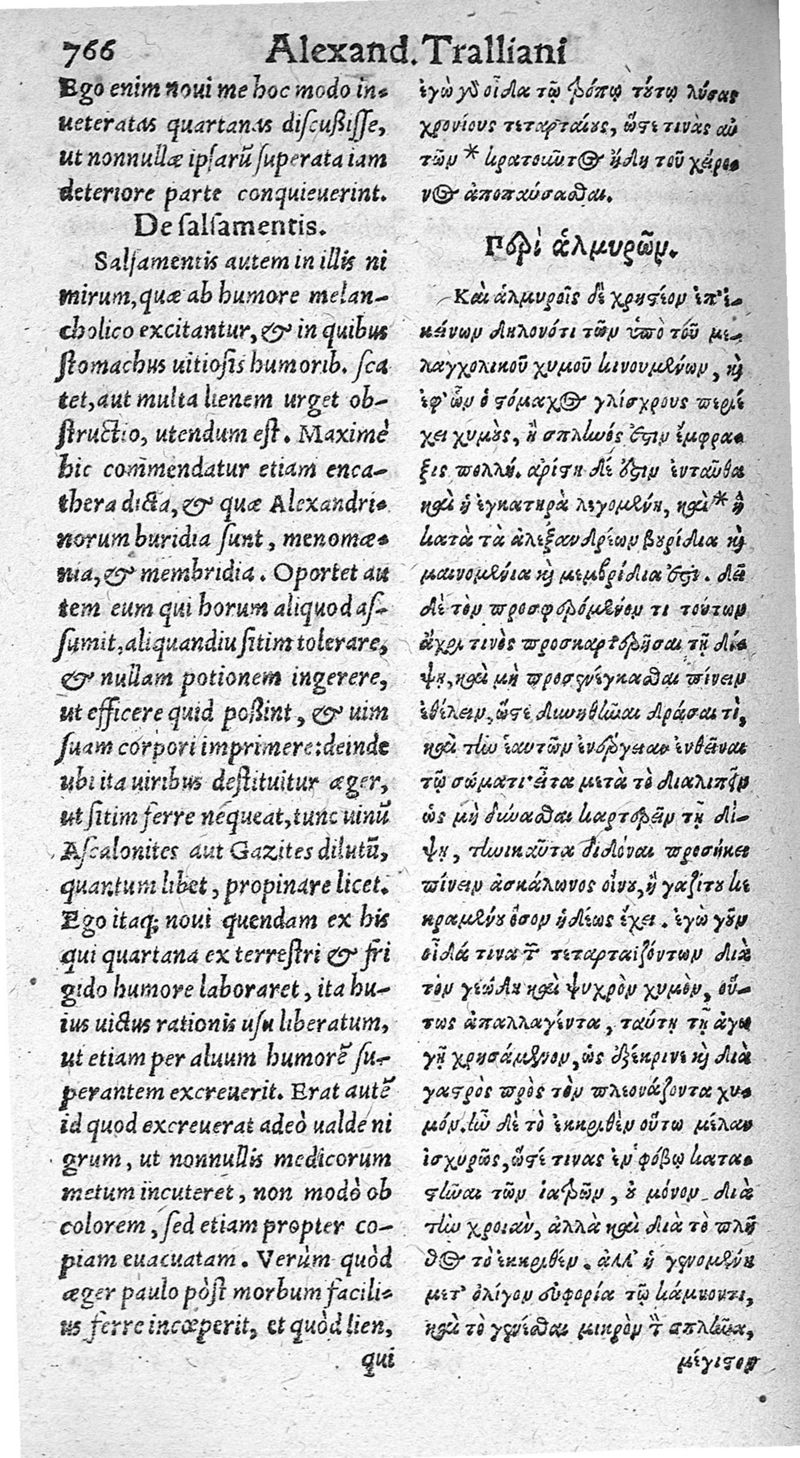 766 Alexand. Tralliani
Ego enim noui me hoc modo in-
ueteratas quartanas discußisse,
ut nonnullæ ipsarũ superata iam
deteriore parte conquieuerint.
De salsamentis.
Salsamentis autem in illis ni
mirum, quæ ab humore melan-
cholico excitantur, & in quibus
stomachus uitiosis humorib. sca
tet, aut multa lienem urget ob-
structio, utendum est. Maximè
hic com̃endatur etiam enca-
thera dicta, & quæ Alexandri-
norum buridia sunt, menomæ-
nia, & membridia. Oportet au
tem eum qui horum aliquod as-
sumit, aliquandiu sitim tolerare,
& nullam potionem ingerere,
ut efficere quid poßint, & uim
suam corpori imprimere: deinde
ubi ita uiribus destituitur æger,
ut sitim ferre nequeat, tunc uinũ
Ascalonites aut Gazites dilutũ,
quantum libet, propinare licet.
Ego itaq; noui quendam ex his
qui quartana ex terrestri & fri
gido humore laboraret, ita hu-
ius uictus rationis usu liberatum,
ut etiam per aluum humorẽ su-
perantem excreuerit. Erat autẽ
id quod excreuerat adeò ualde ni
grum, ut nonnullis medicorum
metum incuteret, non modò ob
colorem, sed etiam propter co-
piam euacuatam. Verùm quòd
æger paulo pòst morbum facili-
us ferre incœperit, et quòd lien,
qui
ἐγὼ γὰρ οἶδα τῷ τρόπῳ τούτῳ λύσας
χρονίους τεταρταίους, ὥστε τινὰς αὐ
τῶν * κρατοιωτος ἤδη τοῦ χείρο-
νος ἀποπαύσασθαι.
Περὶ ἁλμυρῶν.
Καὶ ἁλμυροῖς δὲ χρηστέον ἐπ' ἐ-
κείνων δηλονότι τῶν ὑπὸ τοῦ με-
λαγχολικοῦ χυμοῦ κινουμένων, καὶ
ἐφ' ὧν ὁ στόμαχος γλίσχρους περιέ
χει χυμοὺς, ἢ σπληνός ἐστιν ἔμφρα-
ξις πολλή. ἀρίστη δέ ἐστιν ἐνταῦθα
καὶ ἡ ἐγκατηρὰ λεγομένη, καὶ * ἢ
κατὰ τὰ ἀλεξανδρέων βυρίδια καὶ
μαινομένια καὶ μεμβρίδια ἐστι. δεῖ
δὲ τὸν προσφερόμενον τι τούτων
ἄχρι τινὸς προσκαρτερῆσαι τῇ δί-
ψῃ, καὶ μὴ προσενέγκασθαι πίνειν
ἐθέλειν, ὥστε δυνηθῆναι δρᾶσαι τὶ,
καὶ τὴν ἑαυτῶν ἐνέργειαν ἐνθεῖναι
τῷ σώματι· εἶτα μετὰ τὸ διαλιπεῖν
ὡς μὴ δύνασθαι καρτερεῖν τῇ δί-
ψῃ, τηνικαῦτα διδόναι προσήκει
πίνειν ἀσκάλωνος οἴνου, ἢ γαζίτου κε
κραμένου ὅσον ἡδέως ἔχει. ἐγὼ γοῦν
οἶδά τινα τῶν τεταρταϊζόντων διὰ
τὸν γεώδη καὶ ψυχρὸν χυμὸν, οὕ-
τως ἀπαλλαγέντα, ταύτῃ τῇ ἀγω
γῇ χρησάμενον, ὡς ἐξέκρινε καὶ διὰ
γαστρὸς πρὸς τὸν πλεονάζοντα χυ-
μόν. ἦν δὲ τὸ ἐκκριθὲν οὕτω μέλαν
ἰσχυρῶς, ὥστέ τινας ἐν φόβῳ κατα-
στῆναι τῶν ἰατρῶν, οὐ μόνον διὰ
τὴν χροιὰν, ἀλλὰ καὶ διὰ τὸ πλῆ
θος τὸ ἐκκριθέν. ἀλλ' ἡ γενομένη
μετ' ὀλίγον εὐφορία τῷ κάμνοντι,
καὶ τὸ γενέσθαι μικρὸν τὸν σπλῆνα,
μέγιστον